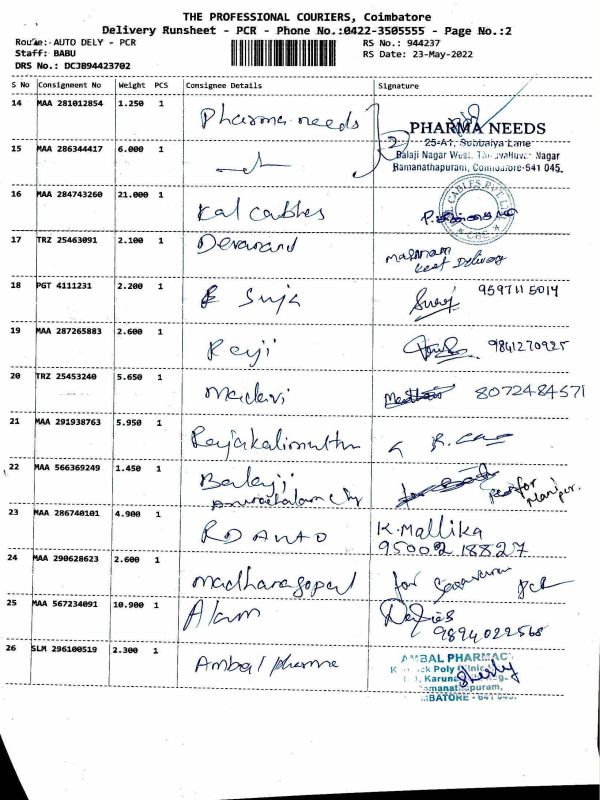 THE PROFESSIONAL COURIERS, Coimbatore
Delivery Runsheet - PCR - Phone No.:0422-3505555 - Page No.:2
Route: AUTO DELY - PCR
Staff: BABU
DRS No.: DCJB94423702
RS No.: 944237
RS Date: 23-May-2022
S No Consignment No Weight PCS Consignee Details Signature
14 MAA 281012854 1.250 1 Pharma needs
PHARMA NEEDS
25-A1, Subbaiya Lane
Balaji Nagar West, Nagar
Ramanathapuram, Coimbatore-641 045.
15 MAA 286344417 6.000 1
16 MAA 284743260 21.000 1 Kal Caubles
CABLES PVT
17 TRZ 25463091 2.100 1 Devanand
Delivery
18 PGT 4111231 2.200 1 Suja Suraj 9597115014
19 MAA 287265883 2.600 1 Reyji 9841270925
20 TRZ 25453240 5.650 1 Madavi 8072484571
21 MAA 291938763 5.950 1 Rayakalimuthu
22 MAA 566369249 1.450 1 Balaji
for
23 MAA 286740101 4.900 1 RD AUTO K.Mallika
95002 18827
24 MAA 290628623 2.600 1 Madharagopal for PCR
25 MAA 567234091 10.900 1 Alam
9894022568
26 SLM 296100519 2.300 1 Ambal pharma
AMBAL PHARMACY
Poly Clinic
Karuna
Ramanathapuram,